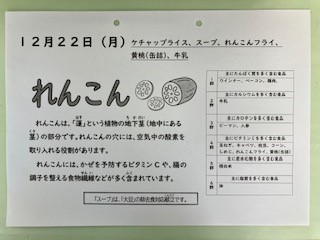 12月22日（月）
ケチャップライス、スープ、れんこんフライ、
黄桃(缶詰)、牛乳
れんこん
れんこんは、「蓮」という植物の地下茎（地中にある
茎）の部分です。れんこんの穴には、空気中の酸素を
取り入れる役割があります。
れんこんには、かぜを予防するビタミンCや、腸の
調子を整える食物繊維などが多く含まれています。
「スープ」は、「大豆」の除去食対応献立です。
主にたんぱく質を多く含む食品
1群
ウインナー、ベーコン、鶏肉、
主にカルシウムを多く含む食品
2群
牛乳
主にカロテンを多く含む食品
3群
ピーマン、人参
主にビタミンCを多く含む食品
4群
玉ねぎ、キャベツ、枝豆、コーン、
しめじ、れんこんフライ、黄桃(缶詰)
主に炭水化物を多く含む食品
5群
精白米
主に脂質を多く含む食品
6群
油